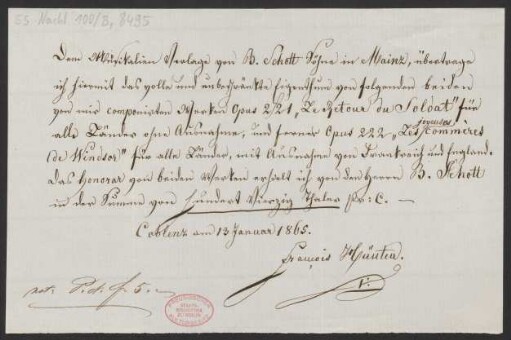 55 Nachl 100/B, 8495
Dem Musikalien Verlage von B. Schott Söhne in Mainz, übertrage
ich hiermit das volle und unbeschränkte Eigenthum von folgenden beiden
von mir componirten Werken Opus 221 "Le Retour du Soldat" für
alle Länder ohne Ausnahme, und ferner Opus 222 "Les joyeuses Commères
de Windsor" für alle Länder, mit Ausnahme von Frankreich und England.
Das Honorar von beiden Werken erhalte ich von den Herren B. Schott
in der Summe von Hundert Vierzig Thaler pr: C. —
Coblenz am 13 Januar 1865.
François Hünten.
not.